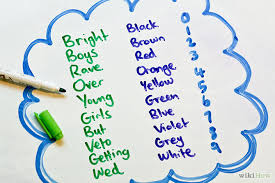 Bright Black 0
Boys Brown 1
Rave Red 2
Over Orange 3
Young Yellow 4
Girls Green 5
But Blue 6
Veto Violet 7
Getting Grey 8
Wed White 9
wikiHow